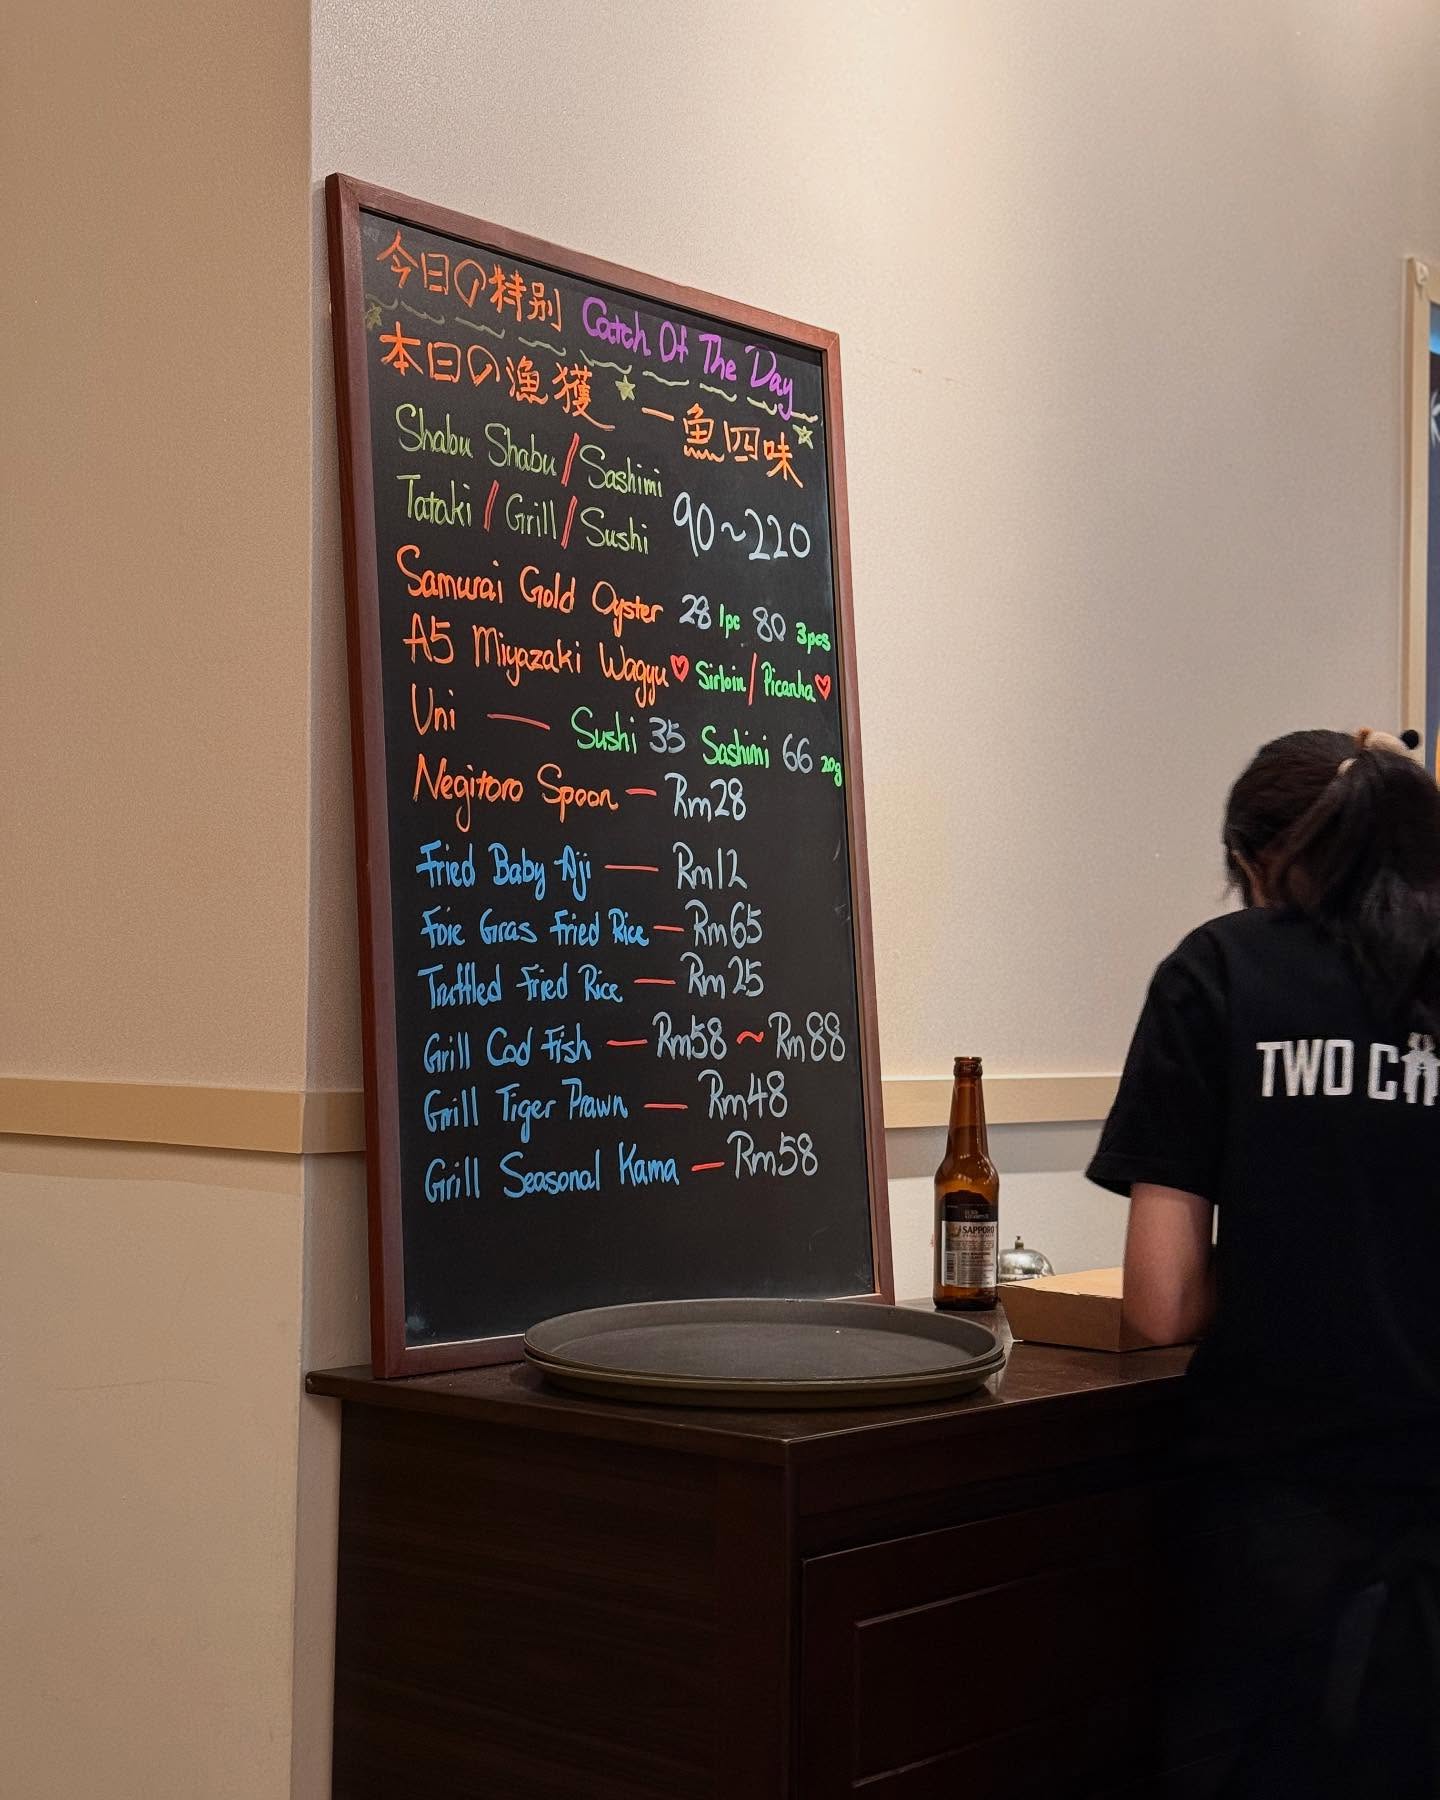 今日の特别 Catch Of The Day
本日の漁獲 一魚四味
Shabu Shabu / Sashimi
Tataki / Grill / Sushi 90~220
Samurai Gold Oyster 28 1pc 80 3pcs
A5 Miyazaki Wagyu♡ Sirloin / Picanha♡
Uni — Sushi 35 Sashimi 66 20g
Negitoro Spoon — Rm28
Fried Baby Aji — Rm12
Foie Gras Fried Rice — Rm65
Truffled Fried Rice — Rm25
Grill Cod Fish — Rm58 ~ Rm88
Grill Tiger Prawn — Rm48
Grill Seasonal Kama — Rm58
SAPPORO
TWO C